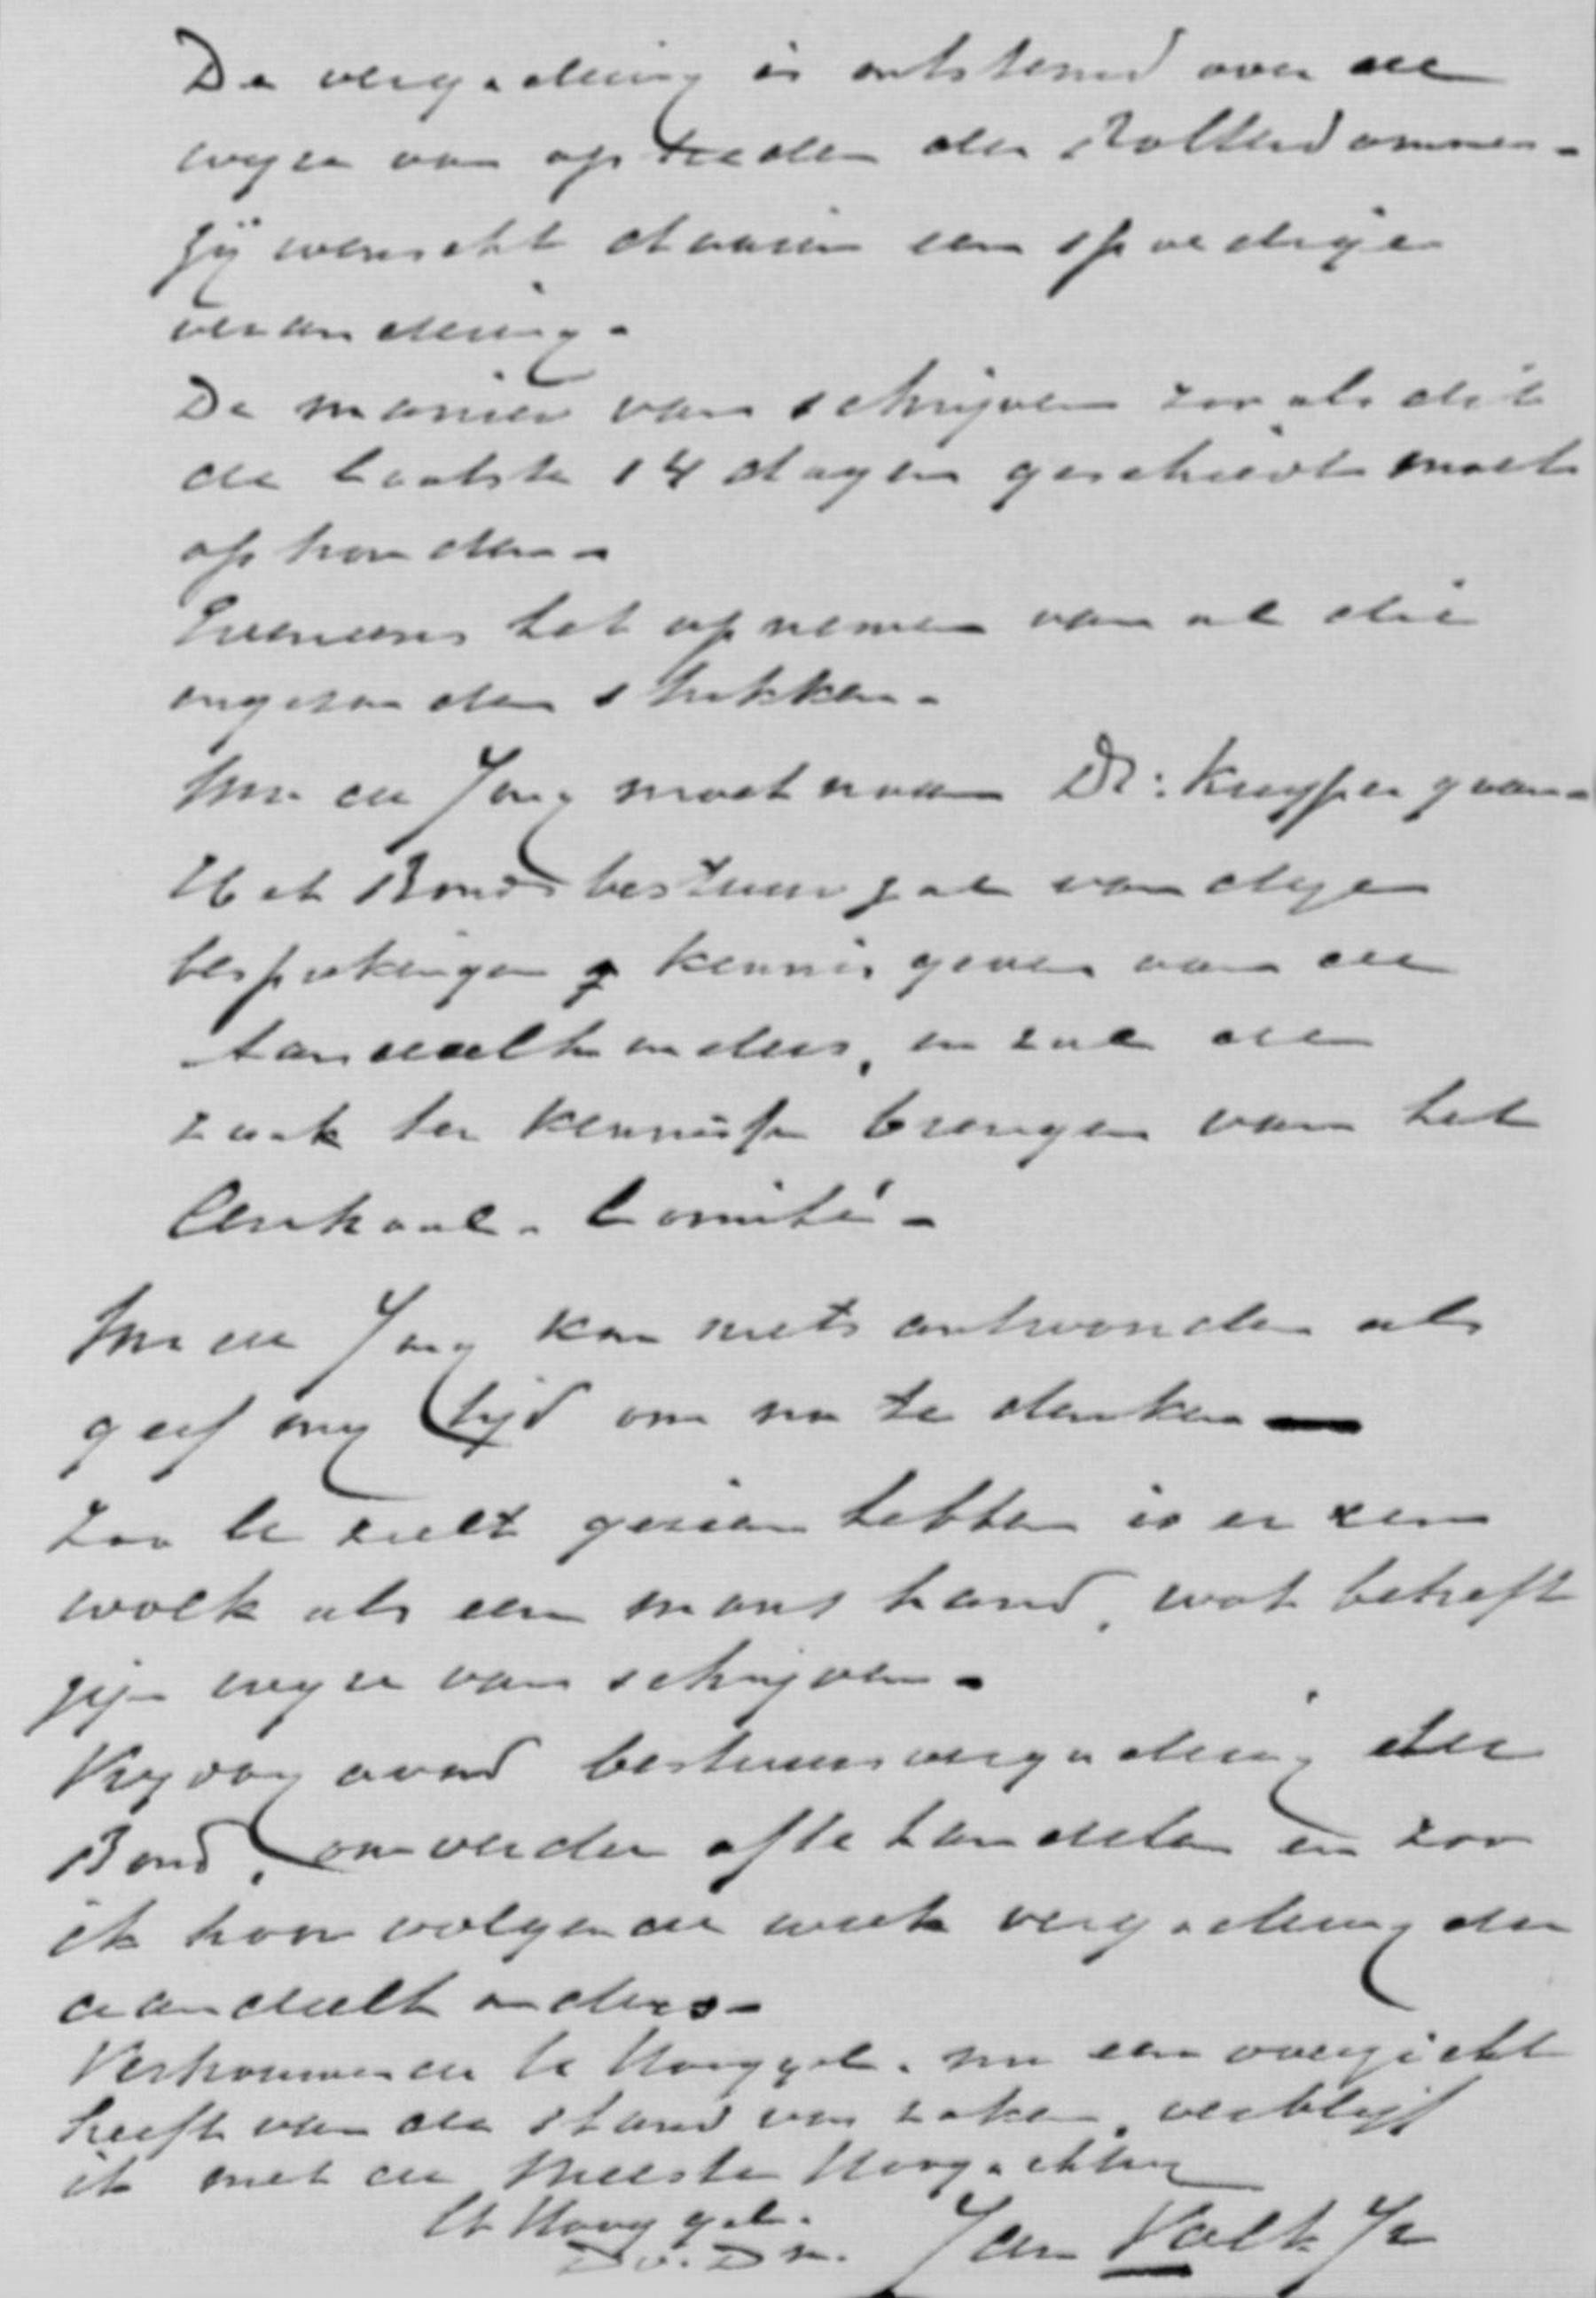 De vergadering is ontstemd over de
wyze van optreden der Rotterdammer.
Zij wenscht daarin een spoedige
verandering.
De manier van schrijven zooals dit
de laatste 14 dagen geschiedt moet
ophouden.
Eveneens het opnemen van al die
ingezonden stukken.
Mr. de Jong moet naar Dr: Kuyper gaan.
Het Bondsbestuur zal van deze
besprekingen kennis geven aan de
Aandeelhouders, en zal de
zaak ter kennisse brengen van het
Centraal-Comité.
Mr. de Jong kon niets antwoorden als
geef my tijd om na te denken —
Zoo U zult gezien hebben is er een
wolk als een mans hand, wat betreft
zijn wyze van schrijven.
Vrydag avond bestuursvergadering der
Bond, om verder af te handelen en zoo
ik hoor volgende week vergadering der
aandeelhouders.
Vertrouwende U Hooggel. nu een overzicht
heeft van den stand van zaken, verblijf
ik met de meeste Hoogachting
Uw Hooggel.
Dw. Dr. Jan Valk Jr